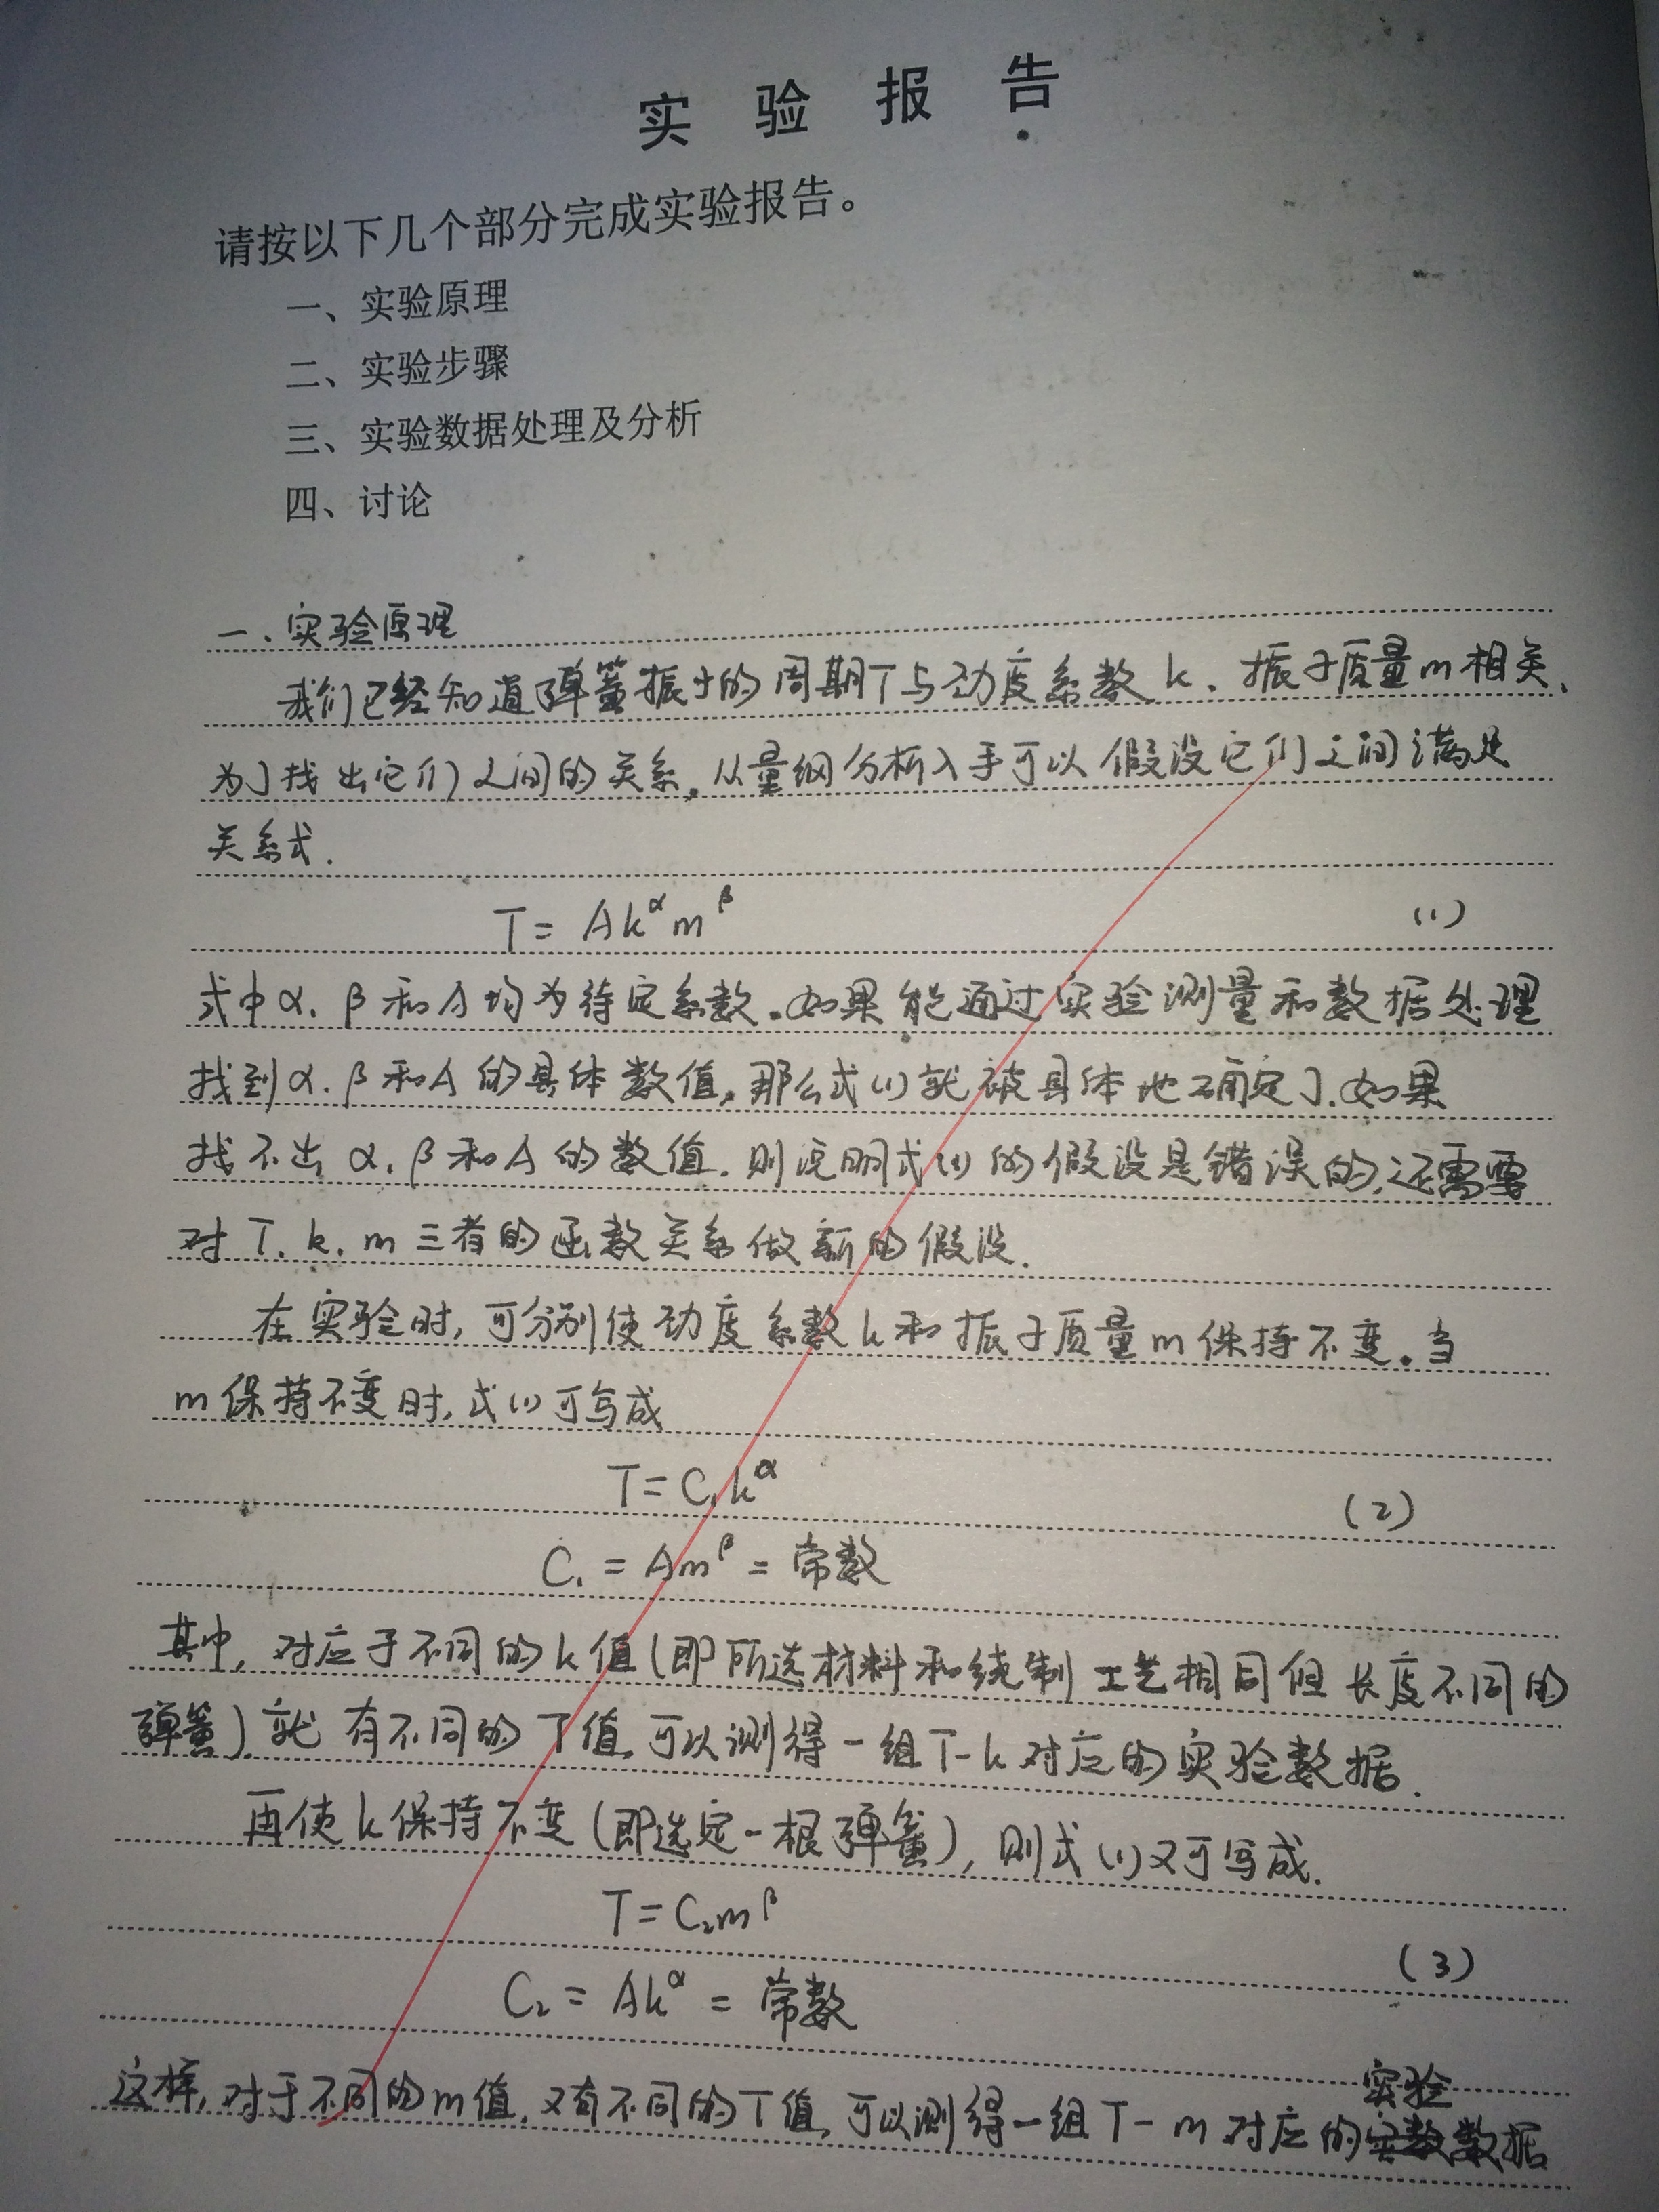 实验报告
请按以下几个部分完成实验报告。
一、实验原理
二、实验步骤
三、实验数据处理及分析
四、讨论
一、实验原理
我们已经知道弹簧振子的周期T与劲度系数k、振子质量m相关、
为了找出它们之间的关系，从量纲分析入手可以假设它们之间满足
关系式．
T = Ak^α m^β (1)
式中α、β和A均为待定系数。如果能通过实验测量和数据处理
找到α、β和A的具体数值，那么式(1)就被具体地确定了．如果
找不出α、β和A的数值．则说明式(1)的假设是错误的，还需要
对T、k、m三者的函数关系做新的假设．
在实验时，可分别使劲度系数k和振子质量m保持不变。当
m保持不变时，式(1)可写成
T = C₁k^α (2)
C₁ = Am^β = 常数
其中，对应于不同的k值（即所选材料和绕制工艺相同但长度不同的
弹簧）．就有不同的T值，可以测得一组T-k对应的实验数据．
再使k保持不变（即选定一根弹簧），则式(1)又可写成．
T = C₂m^β (3)
C₂ = Ak^α = 常数
这样，对于不同的m值．又有不同的T值，可以测得一组T-m对应的实验数据